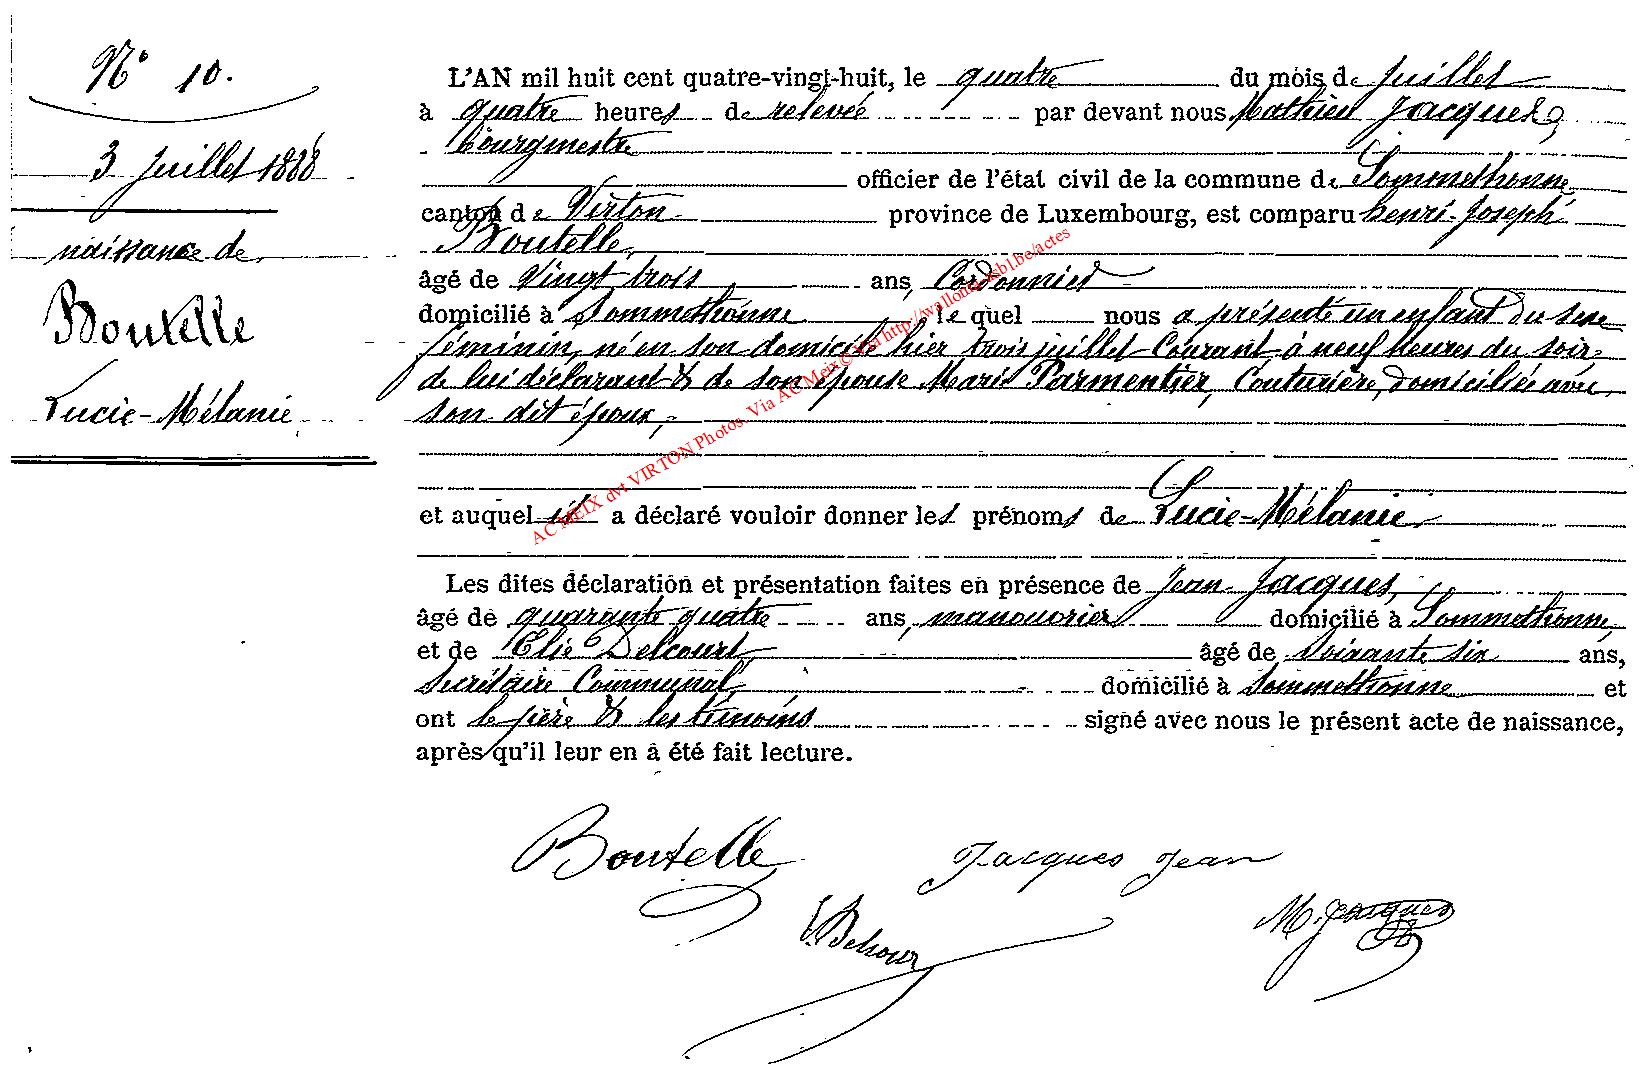 N° 10.
3 Juillet 1888
naissance de
Boutelle
Lucie-Mélanie
L'AN mil huit cent quatre-vingt-huit, le quatre du mois de Juillet
à quatre heures de relevée par devant nous Mathieu Jacques,
bourgmestre
officier de l'état civil de la commune de Sommethonne
canton de Virton province de Luxembourg, est comparu henri-Joseph
Boutelle,
âgé de Vingt trois ans, Cordonnier
domicilié à Sommethonne le quel nous a présenté un enfant du sexe
féminin, né en son domicile hier trois juillet Courant à neuf heures du soir
de lui déclarant & de son épouse Marie Parmentier, Couturière, domiciliée avec
son dit époux,
et auquel il a déclaré vouloir donner les prénoms de Lucie-Mélanie
Les dites déclaration et présentation faites en présence de Jean Jacques,
âgé de quarante quatre ans, manouvrier domicilié à Sommethonne,
et de Elie Delcourt, âgé de Soixante six ans,
Secrétaire Communal, domicilié à Sommethonne et
ont le père & les témoins signé avec nous le présent acte de naissance,
après qu'il leur en à été fait lecture.
Boutelle Jacques Jean
M. Jacques
AC MEIX dvt VIRTON Photos. Via AC Meix © Via http://wallonia-asbl.be/actes